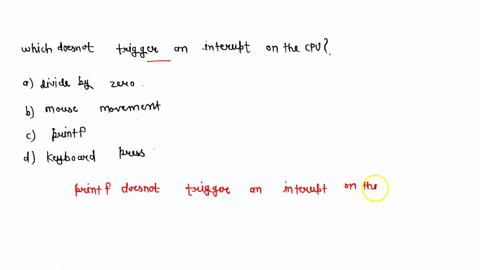 which doesnot trigger an interupt on the CPU?
a) divide by zero.
b) mouse movement
c) printf
d) keyboard press
printf doesnot trigger an interupt on the